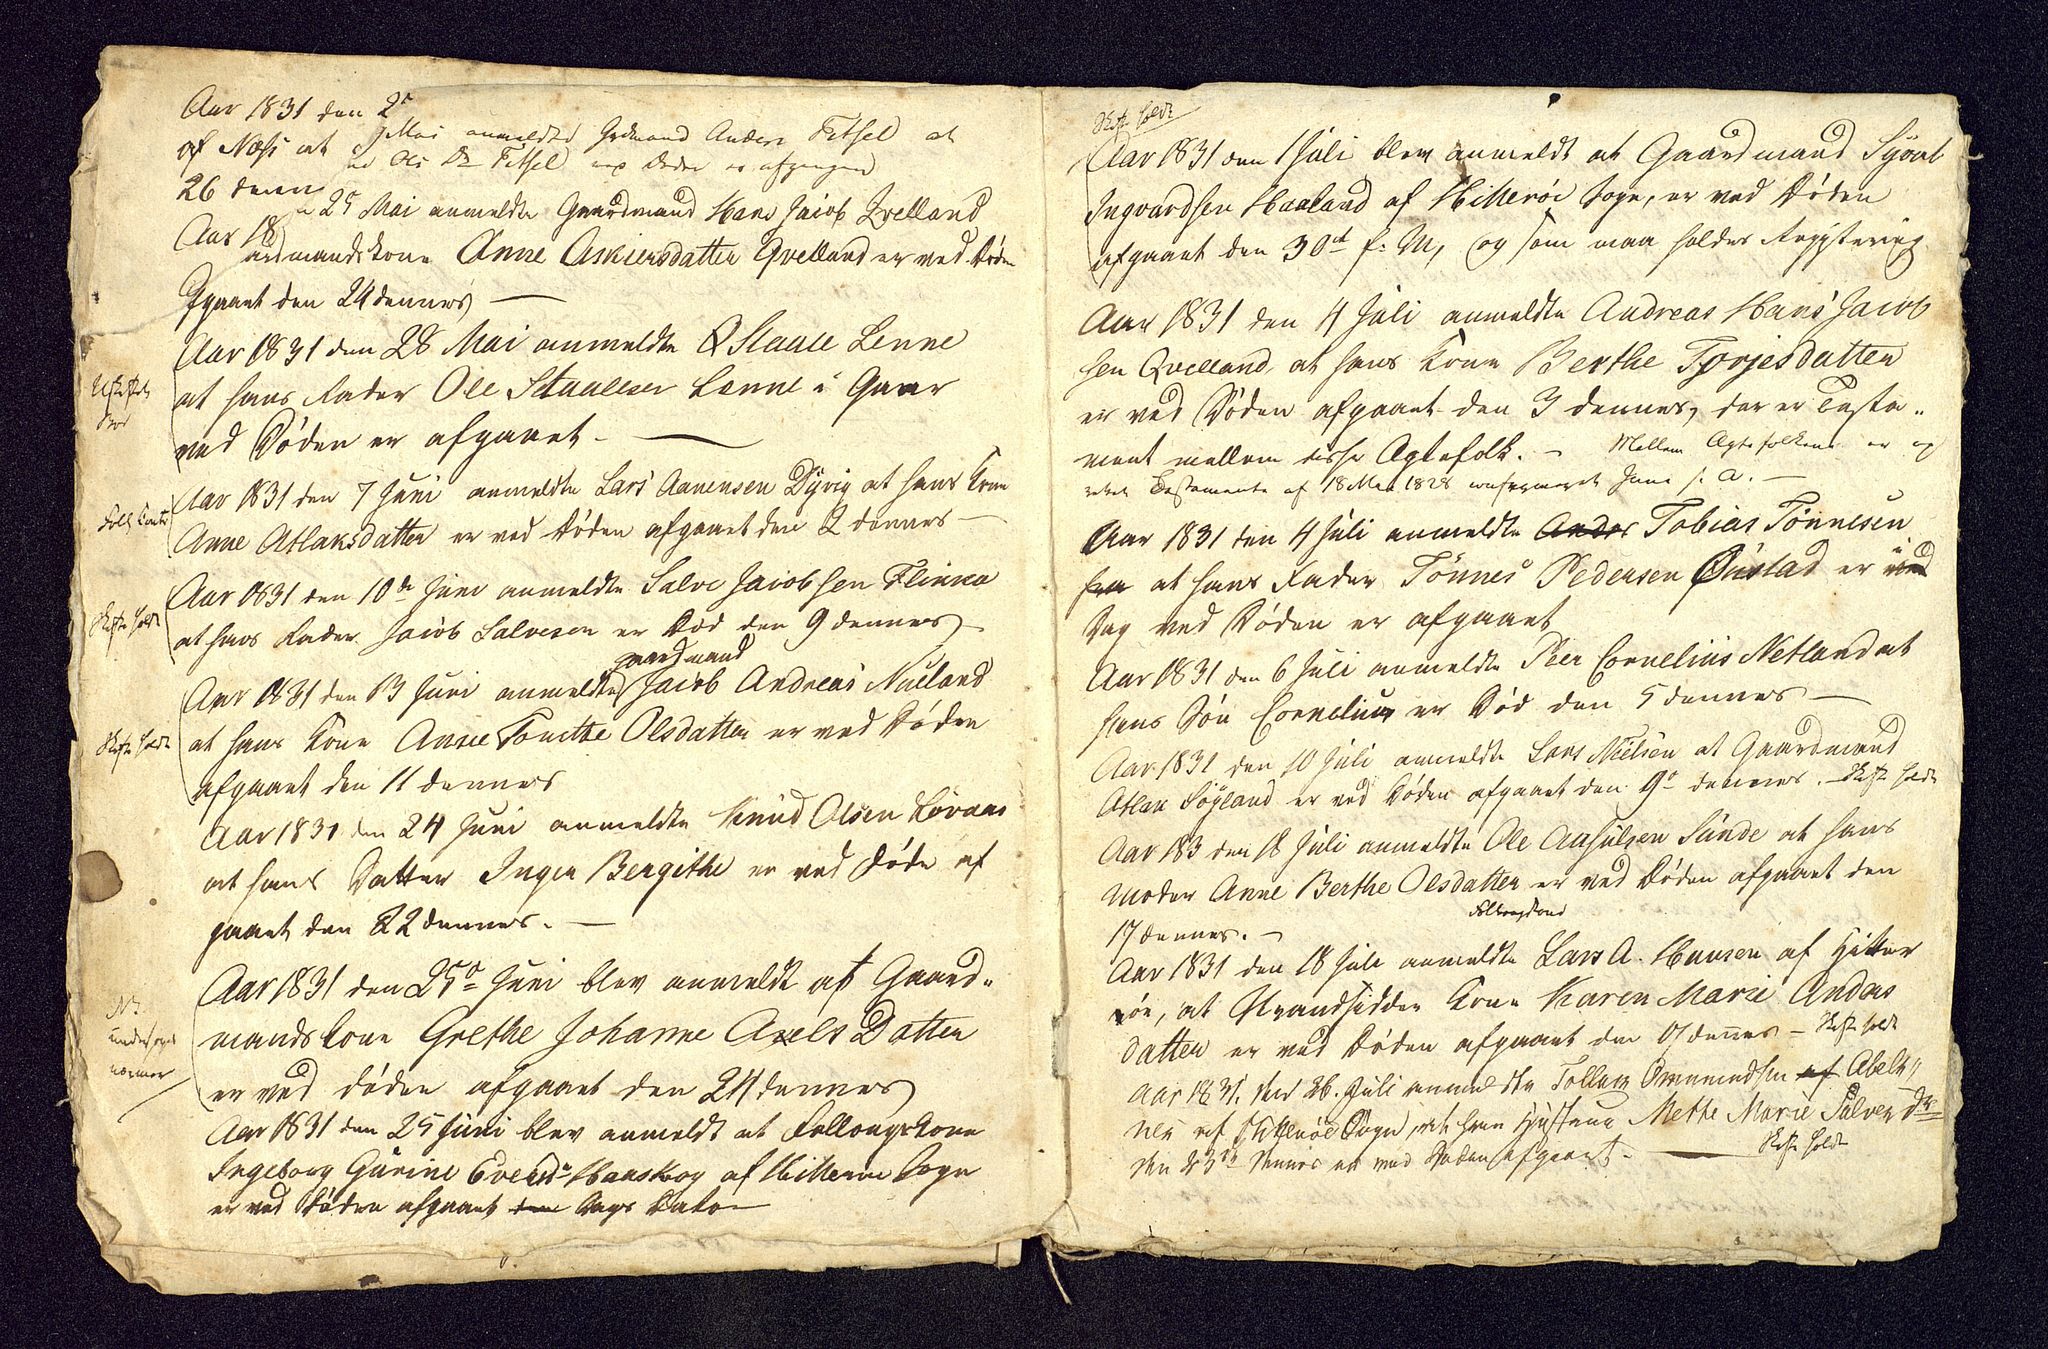 Aar 1831 den 2
af Næss at
Mai anmeldte Grdmand Anders Fitsel at
Ole Fitsel ved Døden er afgangen
26 dennes
25 Mai anmeldte Gaardmand Hans Jacob Qvelland
Aar 18
ardmandskone Anne Askiersdatter Qvelland er ved Døden
fgaaet den 24 dennes —
Aar 1831 den 28 Mai anmeldte Staale Lenne
at hans Fader Ole Staalesen Lenne i Gaar
ved Døden er afgaaet. —
Aar 1831 den 7 Juni anmeldte Lars Aanensen Dyvig at hans Kone
Anne Atlaksdatter er ved Døden afgaaet den 2 dennes —
Skifte holdt
Aar 1831 den 10de Juni anmeldte Salve Jacobsen Flikka
at hans Fader Jacob Salvesen er Død den 9 dennes —
gaardmand
Aar 1831 den 13 Juni anmeldte Jacob Andreas Nuland
Skifte holdt
at hans Kone Anne Tomithe Olsdatter er ved Døden
afgaaet den 11 dennes
Aar 1831 den 24 Juni anmeldte Knud Olsen Røraas
at hans Datter Inger Bergithe er ved Døde af
gaaet den 22 dennes. —
Aar 1831 den 25de Juni blev anmeldt at Gaard-
NB
mandskone Grethe Johanne Axels Datter
nærmer
er ved døden afgaaet den 24 dennes
Aar 1831 den 25 Juni blev anmeldt at Follougskone
Ingeborg Gurine Hanskog af Hitterøe Sogn
er ved Døden afgaaet den Dags Dato —
Skifte holdt
Aar 1831 den 1 Juli blev anmeldt at Gaardmand Syvert
Ingvardsen Haaland af Hitterøe Sogn, er ved Døden
afgaaet den 30te f: M, og som maa holdes Registering
Aar 1831 den 4 Juli anmeldte Andreas Hans Jacob
sen Qvelland at hans Kone Berthe Torjesdatter
er ved Døden afgaaet den 3 dennes, der er Testa-
ment mellem disse Ægtefolk. — Mellem Ægtefolkene er op
rettet Testamente af 18 Mai 1828 confirmeret Juni s. A. —
Aar 1831 den 4 Juli anmeldte Anders Tobias Tønnesen
at hans Fader Tønnes Pedersen Øustad er i
Dag ved Døden er afgaaet
Aar 1831 den 6 Juli anmeldte Peer Cornelius Netland at
hans Søn Cornelius er Død den 5 dennes —
Aar 1831 den 10 Juli anmeldte Lars Nielsen at Gaardmand
Atlak Føgland er ved Døden afgaaet den 9de dennes. — Skifte holdt
Aar 183 den 18 Juli anmeldte Ole Aasulsen Sunde at hans
Moder Anne Berthe Olsdatter er ved Døden afgaaet den
17 dennes. —
Aar 1831 den 18 Juli anmeldte Lars A. Hansen af Hitter
røe, at Strandsidder Kone Karen Marie Anders
datter er ved Døden afgaaet den 17 dennes — Skifte holdt
Aar 1831. den 26. Juli anmeldte Tollack Ommundsen af Abels-
nes af Hitterøe Sogn, at hans Hustrue Mette Marie Salves Dr
den 23de dennes er ved Døden afgaaet. — Skifte holdt